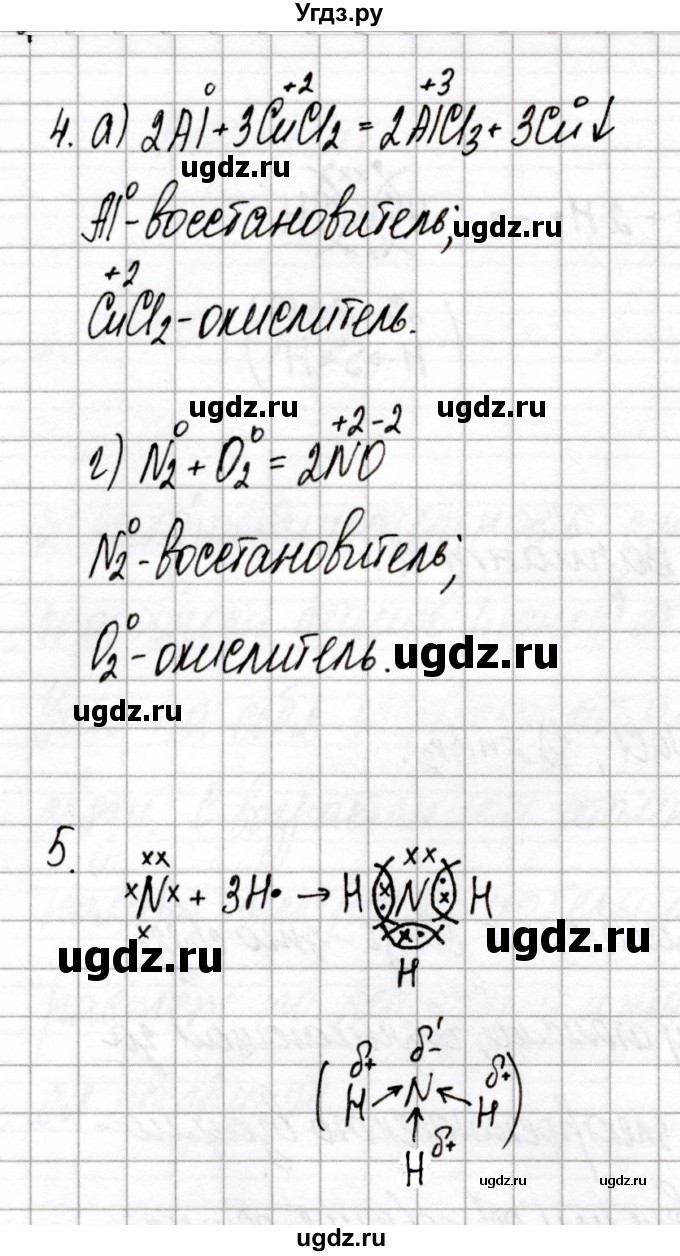 Угдз.ру
4. а) 2Al⁰ + 3Cu⁺²Cl₂ = 2Al⁺³Cl₃ + 3Cu⁰↓
ugdz.ru
Al⁰ - восстановитель;
ugdz.ru
Cu⁺²Cl₂ - окислитель.
ugdz.ru ugdz.ru
г) N₂⁰ + O₂⁰ = 2N⁺²O⁻²
N₂⁰ - восстановитель;
O₂⁰ - окислитель.
ugdz.ru
ugdz.ru
5.
xx
xNx + 3H• → H (x•) N (•x) H
x
x•
ugdz.ru ugdz.ru
H
δ+ δ-' δ+
( H → N ← H )
↑
H δ+
ugdz.ru ugdz.ru
ugdz.ru